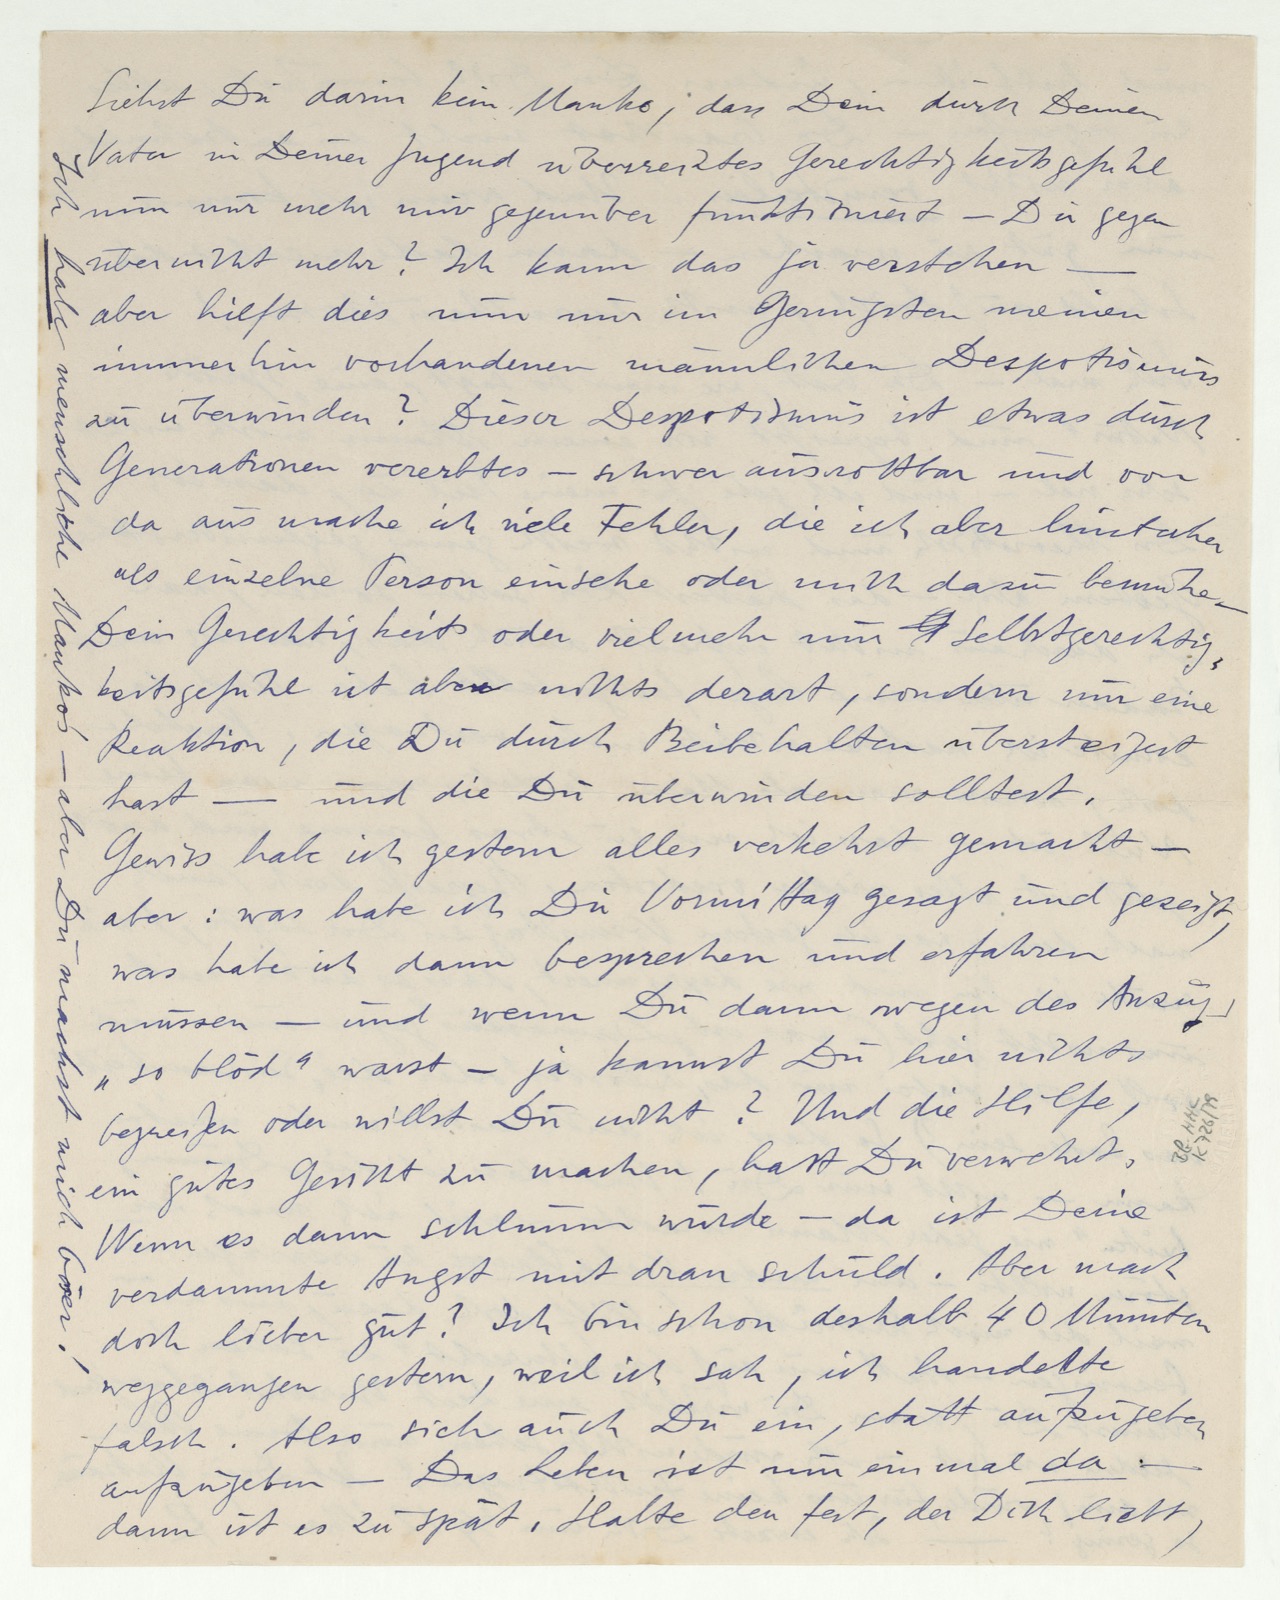 Siehst Du darin kein Manko, dass Dein durch Deinen
Vater in Deiner Jugend überreiztes Gerechtigkeitsgefühl
nun nur mehr mir gegenüber funktioniert — Dir gegen
über nicht mehr? Ich kann das ja verstehen —
aber hilft dies nun mir im Geringsten meinen
immerhin vorhandenen männlichen Despotismus
zu überwinden? Dieser Despotismus ist etwas durch
Generationen vererbtes — schwer ausrottbar und von
da aus mache ich viele Fehler, die ich aber hinterher
als einzelne Person einsehe oder mich dazu bemühe —
Dein Gerechtigkeits oder vielmehr nur Selbstgerechtig-
keitsgefühl ist aber nichts derart, sondern nur eine
Reaktion, die Du durch Beibehalten übersteigert
hast — und die Du überwinden solltest.
Gewiss habe ich gestern alles verkehrt gemacht —
aber: was habe ich Dir Vormittag gesagt und gezeigt,
was habe ich dann besprechen und erfahren
müssen — und wenn Du dann wegen des Anzugs
„so blöd“ warst — ja kannst Du hier nichts
begreifen oder willst Du nicht? Und die Hilfe,
ein gutes Gesicht zu machen, hast Du verwehrt.
Wenn es dann schlimm wurde — da ist Deine
verdammte Angst mit dran schuld. Aber mach
doch lieber gut! Ich bin schon deshalb 40 Minuten
weggegangen gestern, weil ich sah, ich handelte
falsch. Also sieh auch Du ein, statt aufzugeben
aufzugeben — Das Leben ist nur einmal da —
dann ist es zu spät. Halte den fest, der Dich liebt,
Ich habe menschliche Mankos — aber Du machst mich böser!
BG-HHC
K 726/79